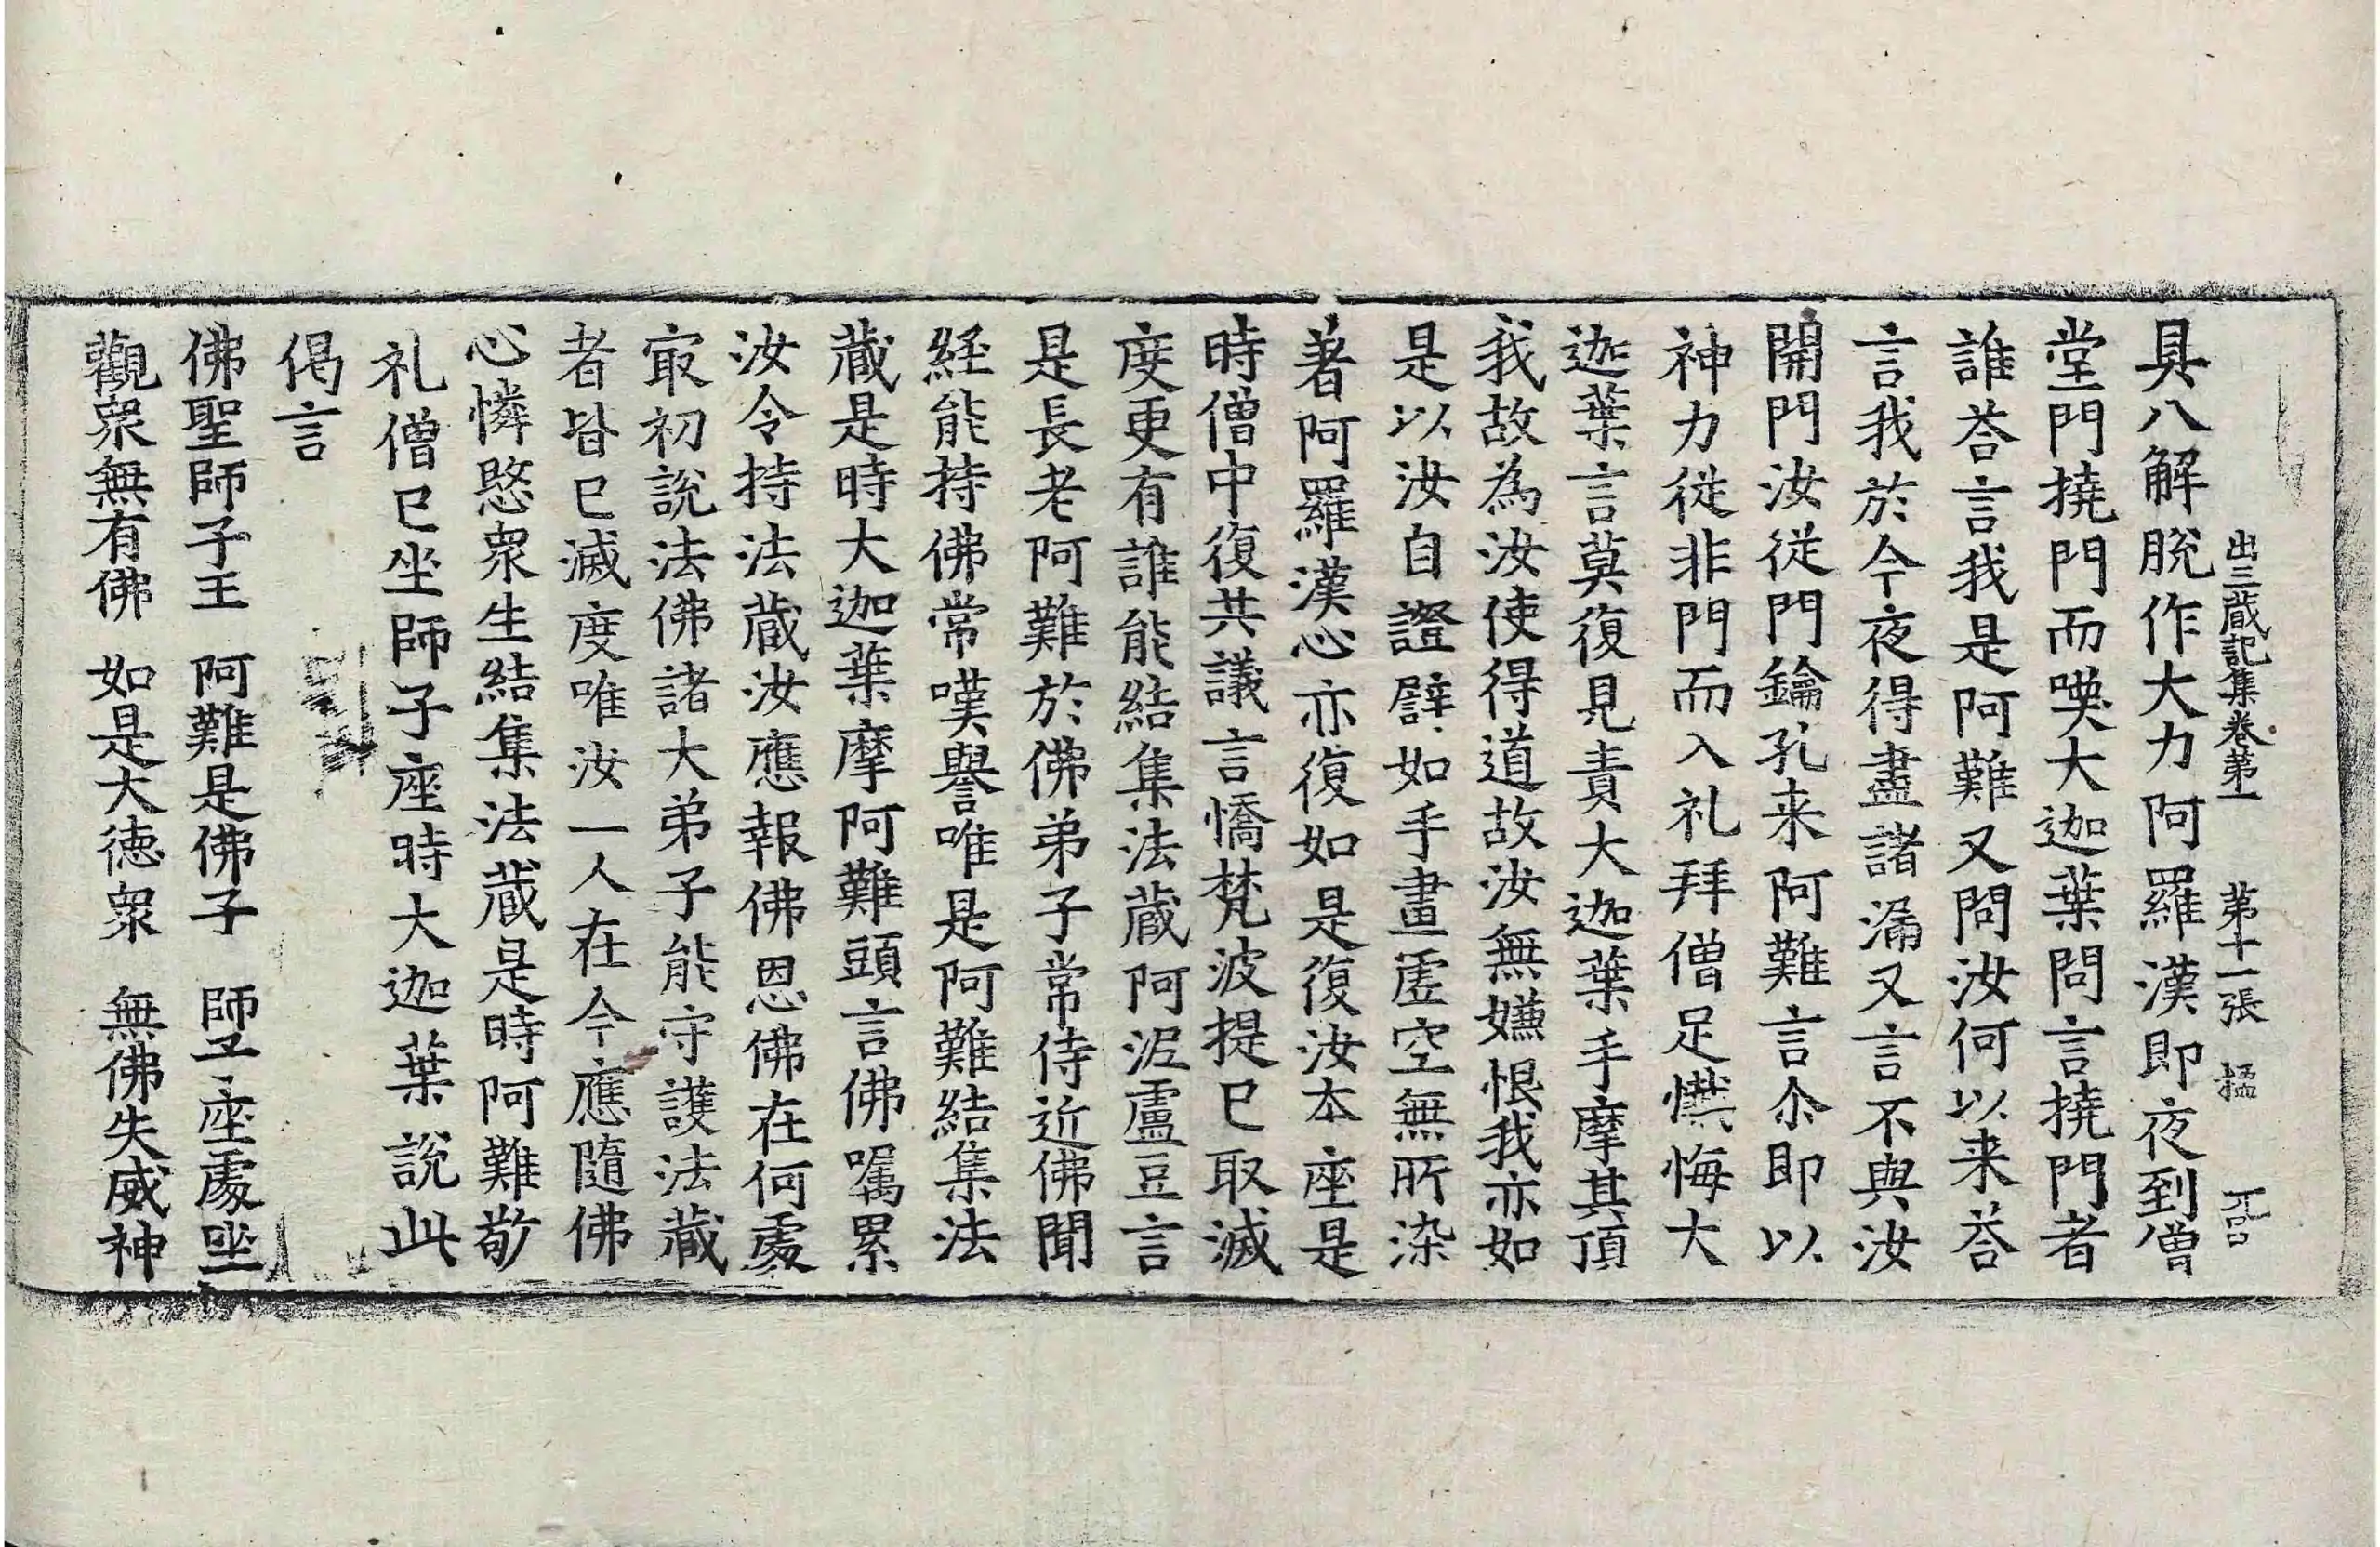 出三蔵記集卷第一 第十一張
具八解脫作大力阿羅漢即夜到僧
堂門撓門而喚大迦葉問言撓門者
誰荅言我是阿難又問汝何以来荅
言我於今夜得盡諸漏又言不與汝
開門汝從門鑰孔来阿難言尒即以
神力從非門而入礼拜僧足懺悔大
迦葉言莫復見責大迦葉手摩其頂
我故為汝使得道故汝無嫌恨我亦如
是以汝自證譬如手畫虛空無所染
著阿羅漢心亦復如是復汝本座是
時僧中復共議言憍梵波提已取滅
度更有誰能結集法蔵阿泥盧豆言
是長老阿難於佛弟子常侍近佛聞
経能持佛常嘆譽唯是阿難結集法
蔵是時大迦葉摩阿難頭言佛囑累
汝令持法蔵汝應報佛恩佛在何處
㝡初說法佛諸大弟子能守護法蔵
者皆已滅度唯汝一人在今應隨佛
心憐愍衆生結集法蔵是時阿難敬
礼僧已坐師子座時大迦葉說此
偈言
佛聖師子王 阿難是佛子 師子座處坐
觀衆無有佛 如是大德衆 無佛失威神